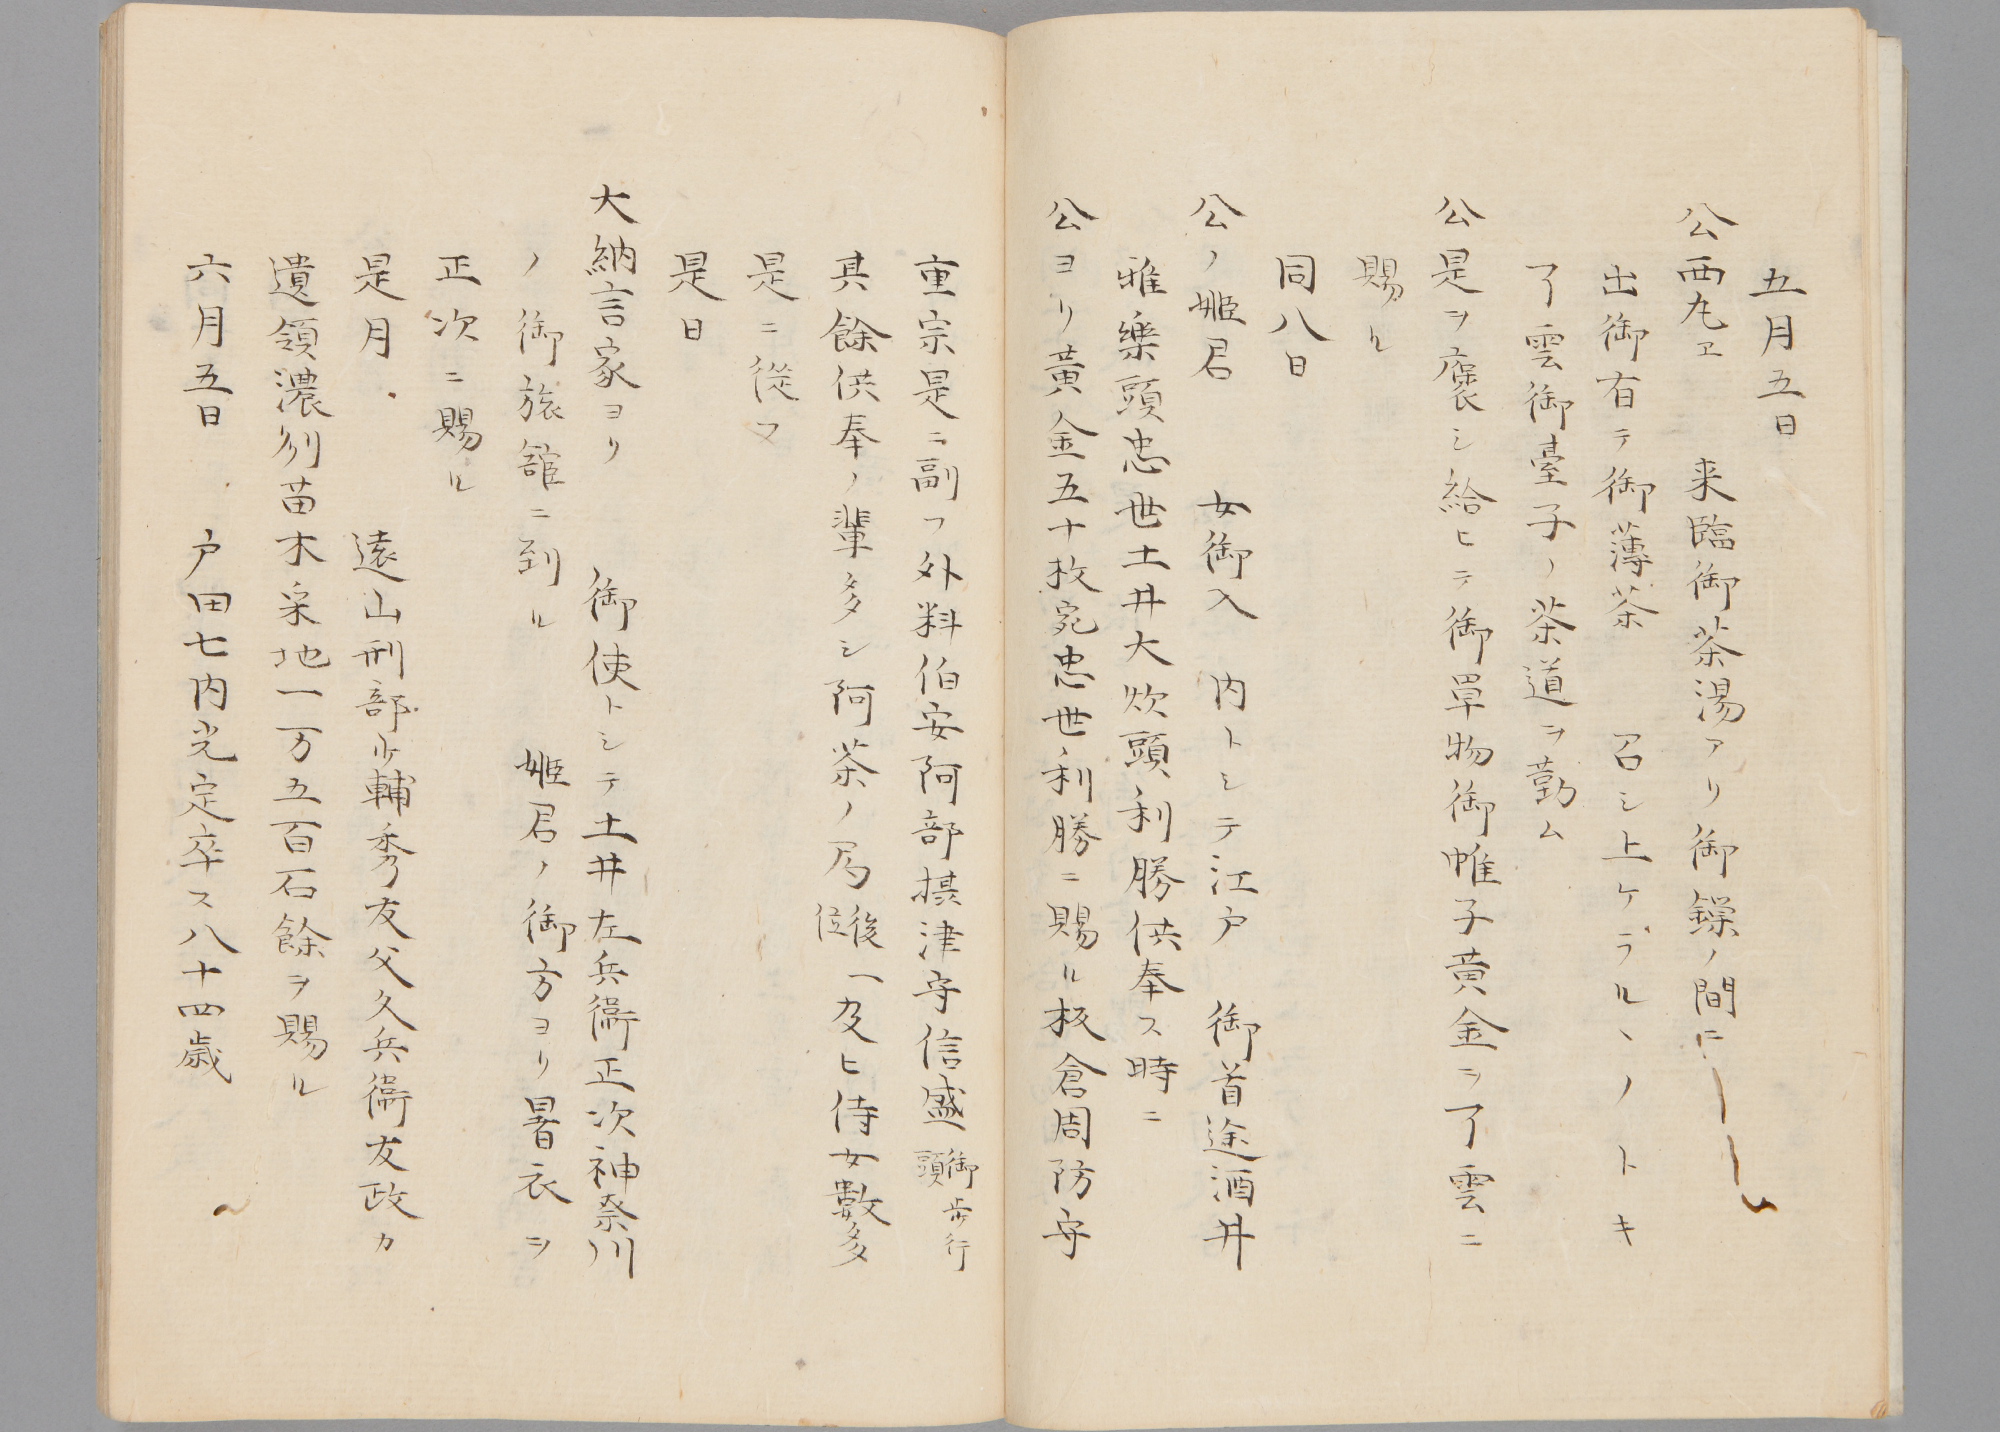 五月五日
公西丸ヱ 来臨御茶湯アリ御鏁ノ間ニ
出御有テ御薄茶 召シ上ケラルヽノトキ
了雲御臺子ノ茶道ヲ勤ム
公是ヲ褒シ給ヒテ御單物御帷子黄金ヲ了雲ニ
賜ル
同八日
公ノ姫君 女御入 内トシテ江戸 御首途酒井
雅樂頭忠世土井大炊頭利勝供奉ス時ニ
公ヨリ黄金五十枚宛忠世利勝ニ賜ル板倉周防守
重宗是ニ副フ外料伯安阿部摂津守信盛御歩行頭
其餘供奉ノ輩多シ阿茶ノ局後一位及ヒ侍女數多
是ニ從フ
是日
大納言家ヨリ 御使トシテ土井左兵衞正次神奈川
ノ御旅舘ニ到ル 姫君ノ御方ヨリ暑衣ヲ
正次ニ賜ル
是月 遠山刑部少輔秀友父久兵衞友政カ
遺領濃州苗木采地一万五百石餘ヲ賜ル
六月五日 戸田七内光定卒ス八十四歳